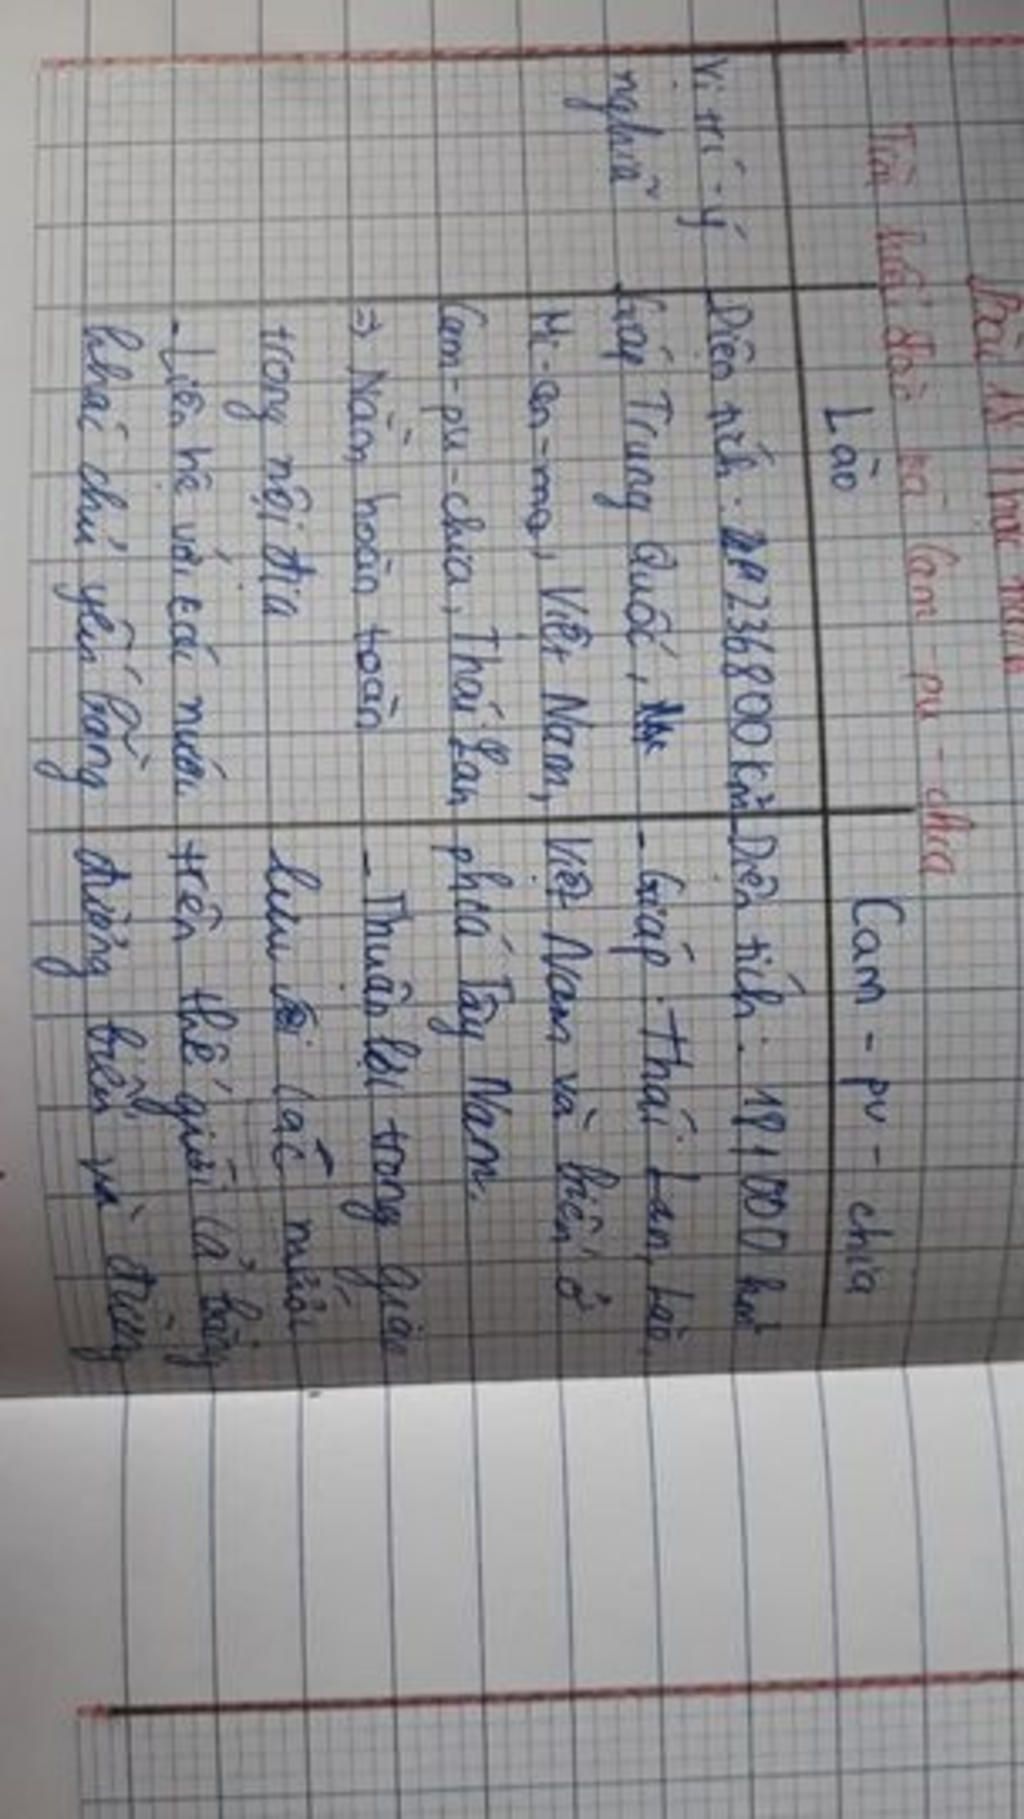 Bài 18 Thực hành
Tìm hiểu Lào và Cam-pu-chia
Lào
Cam-pu-chia
Vị trí-ý
nghĩa
Diện tích: 236800 km²
Giáp Trung Quốc,
Mi-an-ma, Việt Nam,
Cam-pu-chia, Thái Lan
=> Nằm hoàn toàn
trong nội địa
- Liên hệ với các nước
khác chủ yếu bằng
Diện tích: 181000 km²
- Giáp: Thái Lan, Lào,
Việt Nam và biển ở
phía Tây Nam.
- Thuận lợi trong giao
lưu với các nước
trên thế giới cả bằng
đường biển và đường